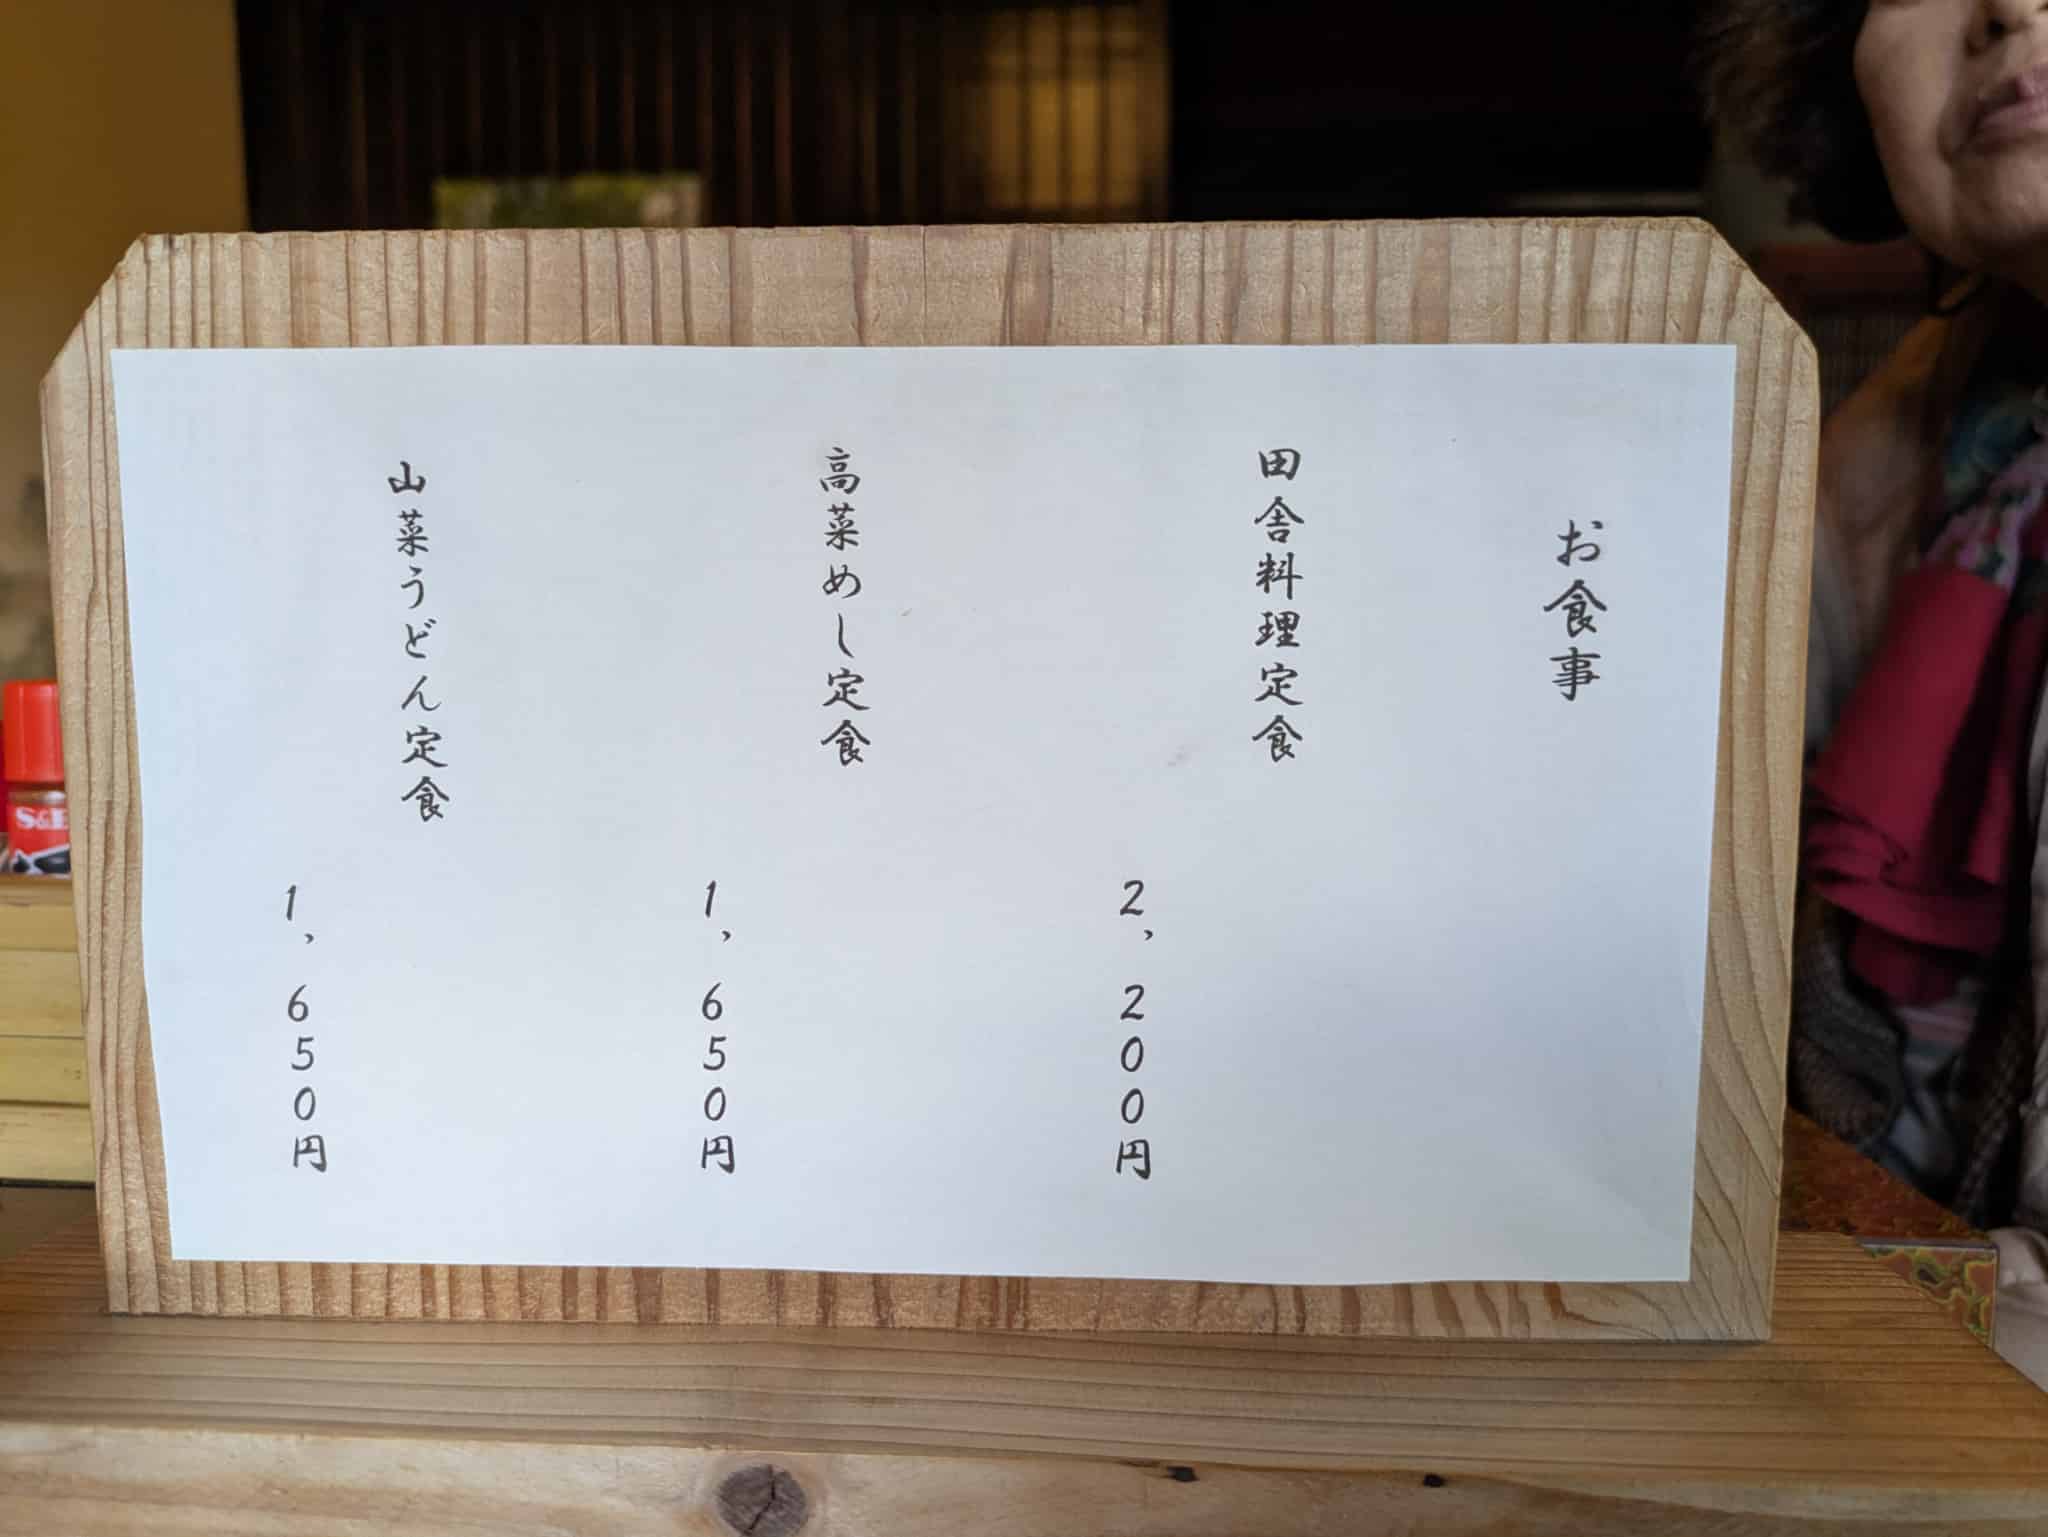 お食事
田舎料理定食
2,200円
高菜めし定食
1,650円
山菜うどん定食
1,650円
S&B